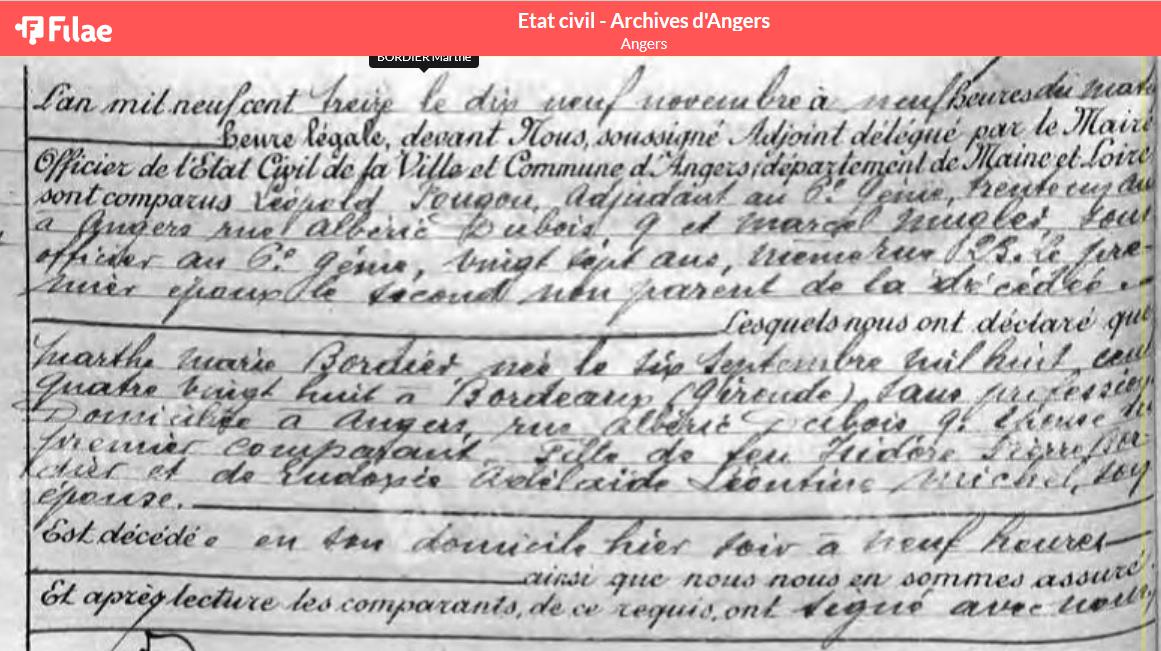 Filae
Etat civil - Archives d'Angers
Angers
BORDIER Marthe
L'an mil neuf cent treize le dix neuf novembre à neuf heures du matin
heure légale, devant Nous, soussigné Adjoint délégué par le Maire
Officier de l'Etat Civil de la Ville et Commune d'Angers, département de Maine et Loire
sont comparus Léopold Adjudant au 6e Génie, trente un ans
à Angers rue Albéric Dubois 9 et marcel sous
officier au 6e génie, vingt sept ans, même rue 23. Le pre-
mier époux le second non parent de la décédée.
Lesquels nous ont déclaré que
marthe marie Bordier née le six septembre mil huit cent
quatre vingt huit à Bordeaux (Gironde), sans profession
Domiciliée à Angers, rue Albéric Dubois 9. épouse du
premier comparant. Fille de feu Isidore Pierre Bor-
dier et de Eudoxie Adélaïde Léontine michel, son
épouse.
Est décédée en son domicile hier soir à neuf heures
ainsi que nous nous en sommes assuré.
Et après lecture les comparants, de ce requis, ont signé avec nous.